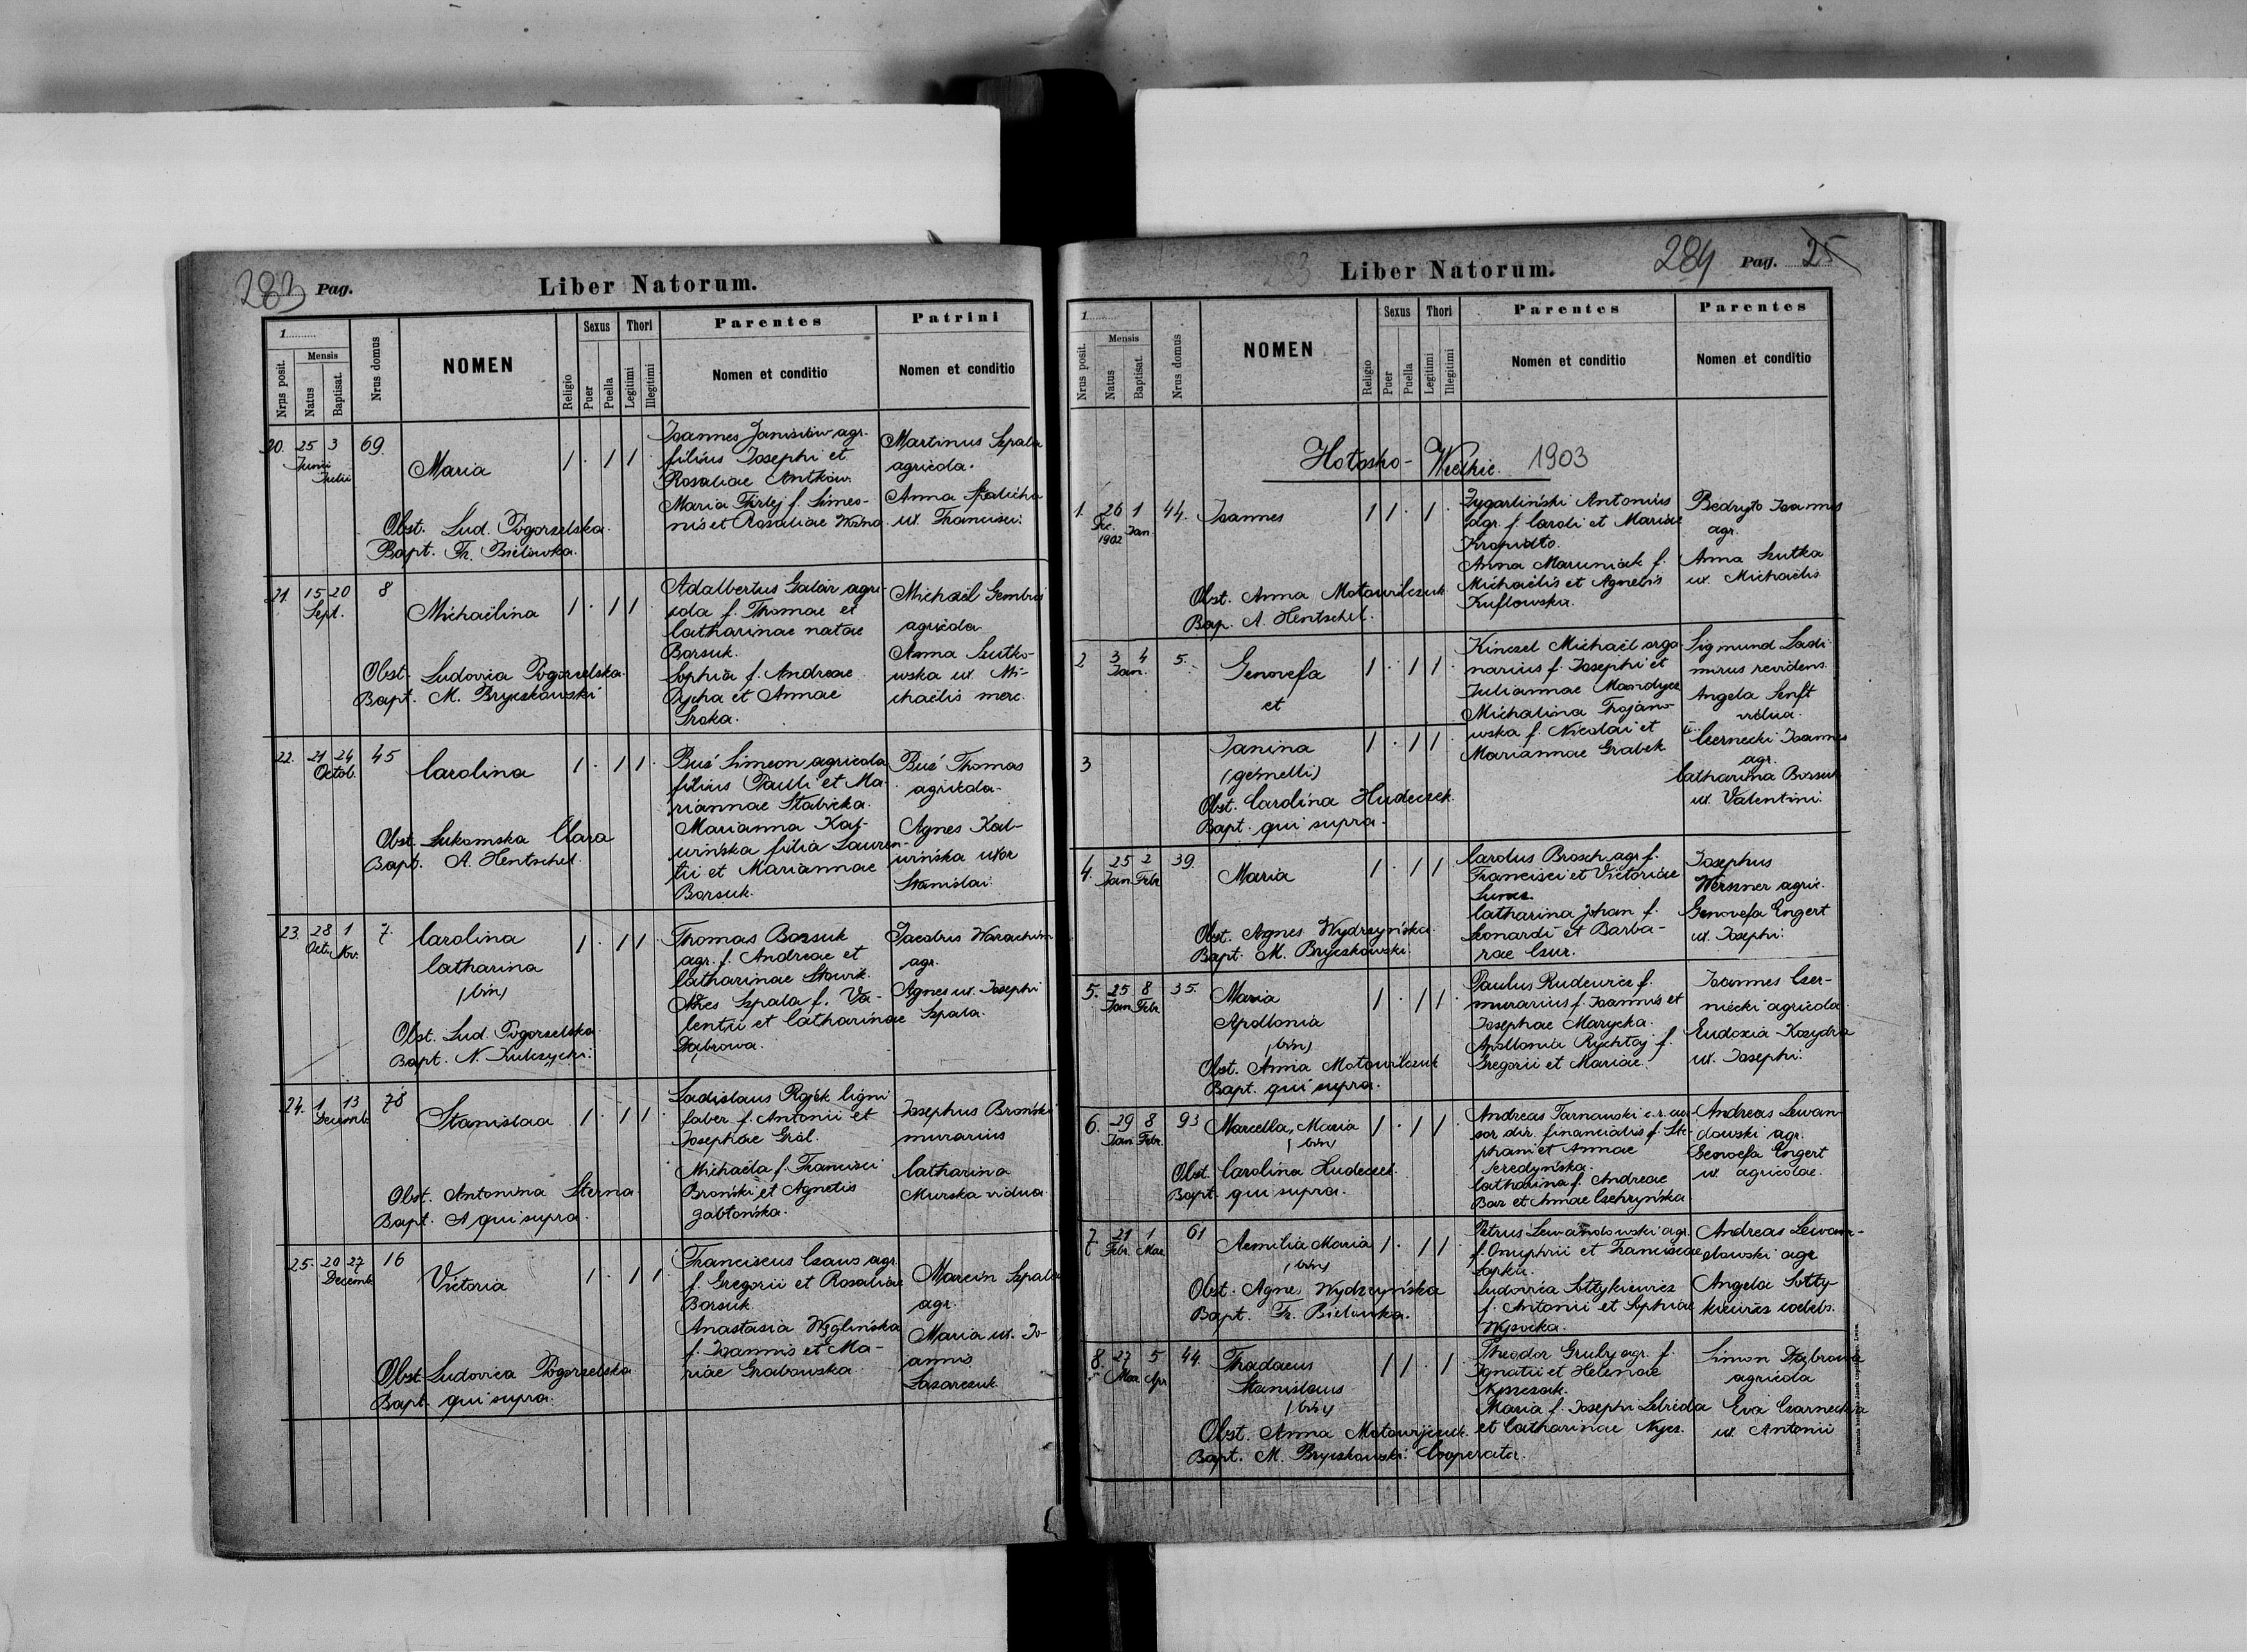 283 Pag.
Liber Natorum.
1
Nrus posit.
Mensis
Natus
Baptisat.
Nrus domus
NOMEN
Religio
Sexus
Puer
Puella
Thori
Legitimi
Illegitimi
Parentes
Nomen et conditio
Patrini
Nomen et conditio
20. 25 3 69.
Junii
Julii
Maria
1 · 1 1
Obst. Lud. Pogorzelska.
Bapt. Fr. Bielówka.
Joannes Janisiów agr.
filius Josephi et
Rosaliae Antków.
Maria Firlej f. Simeo-
nis et Rosaliae
Martinus Szpala
agricola.
Anna
ux. Francisci.
21. 15 20 8
Sept.
Michaëlina
1 · 1 1
Obst. Ludovica Pogorzelska.
Bapt. M. Bryczkowski
Adalbertus Galar agri-
cola f. Thomae et
Catharinae natae
Borsuk.
Sophia f. Andreae
Pycha et Annae
Sroka.
Michaël
agricola
Anna Szutko-
wska ux. Mi-
chaëlis merc.
22. 21 24 45
Octob.
Carolina
1 · 1 1 ·
Obst. Łukomska Clara
Bapt. A. Hentschel.
Buś Simeon agricola
filius Pauli et Ma-
riannae Stabicka.
Marianna Kal-
wińska filia Lauren-
tii et Mariannae
Borsuk.
Buś Thomas
agricola.
Agnes Kal-
wińska uxor
Stanislai.
23. 28 1 7.
Oct. Nov.
Carolina
Catharina
(bin)
1 · 1 1
Obst. Lud. Pogorzelska.
Bapt. N. Kulczycki.
Thomas Borsuk
agr. f. Andreae et
Catharinae Słowik.
Agnes Szpala f. Va-
lentii et Catharinae
Dąbrowa.
Jacobus
agr.
Agnes ux. Josephi
Szpala.
24. 1 13 78
Decemb.
Stanislaa
1 · 1 1
Obst. Antonina Sterna
Bapt. A qui supra.
Ladislaus Rojek ligni
faber f. Antonii et
Josephae Grál.
Michaëla f. Francisci
Broński et Agnetis
Jabłońska.
Josephus Broński
murarius
Catharina
Murska vidua.
25. 20 27 16
Decemb.
Victoria
1 · 1 1
Obst. Ludovica Pogorzelska
Bapt. qui supra.
Franciscus Czaus agr.
f. Gregorii et Rosaliae
Borsuk.
Anastasia Węglińska
f. Joannis et Ma-
riae Grabowska.
Marcin Szpala
agr.
Maria ux. Jo-
annis
Łazarczuk.
Liber Natorum.
284 Pag. 25
1
Nrus posit.
Mensis
Natus
Baptisat.
Nrus domus
NOMEN
Religio
Sexus
Puer
Puella
Thori
Legitimi
Illegitimi
Parentes
Nomen et conditio
Parentes
Nomen et conditio
Hołosko-Wielkie. 1903
1. 26 1 44.
Dec. Jan.
1902
Joannes
1 1 · 1 ·
Obst. Anna Motowilczuk
Bap. A. Hentschel.
Zygarliński Antonius
agr. f. Caroli et Mariae
Kropidło.
Anna Maruniak f.
Michaëlis et Agnetis
Kuflowska.
Bedryło Joannes
agr.
Anna Szutka
ux. Michaëlis
2 3 4 5.
Jan.
Genovefa
et
1 · 1 1 ·
3
Janina
(gemelli)
1 · 1 1
Obst. Carolina Hudeczek.
Bapt. qui supra.
Kinczel Michaël orga-
narius f. Josephi et
Juliannae
Michalina Trojano-
wska f. Nicolai et
Mariannae Grabek
Sigmund Ladi-
mirus revidens.
Angela Senft
vidua.
Czernecki Joannes
agr.
Catharina Borsuk
ux. Valentini.
4. 25 2 39.
Jan. Febr.
Maria
1 · 1 1
Obst. Agnes Wydrzyńska.
Bapt. M. Bryczkowski.
Carolus Brosch agr. f.
Francisci et Victoriae
Catharina Johan f.
Leonardi et Barba-
rae Czur.
Josephus
Werszner agric.
Genovefa Engert
ux. Josephi.
5. 25 8 35.
Jan. Febr.
Maria
Apollonia
(bin)
1 · 1 1 ·
Obst. Anna Motowilczuk
Bapt. qui supra.
Paulus Rudewicz f.
murarius f. Joannis et
Josephae Marycka.
Apollonia Rychtaj f.
Gregorii et Mariae.
Joannes Czer-
niecki agricola.
Eudoxia Kozydra
ux. Josephi.
6. 29 8 93
Jan. Febr.
Marcella, Maria
(bin)
1 · 1 1
Obst. Carolina Hudeczek.
Bapt. qui supra.
Andreas Tarnawski c.r. cur-
sor dir. financialis f. Ste-
phani et Annae
Seredyńska.
Catharina f. Andreae
Bar et Annae Czehryńska
Andreas Lewan-
dowski agr.
Genovefa Engert
ux. agricolae.
7. 21 1 61
Febr. Mar.
Aemilia Maria
(bin)
1 · 1 1
Obst. Agnes Wydrzyńska
Bapt. Fr. Bielówka.
Petrus Lewandowski agr.
f. Onuphrii et Franciscae
Łapka.
Ludovica Sołtykiewicz
f. Antonii et Sophiae
Wysocka.
Andreas Lewan-
dowski agr.
Angela Sołty-
kiewicz coelebs.
8. 27 5 44.
Mar. Apr
Thadaeus
Stanislaus
(bin)
1 1 · 1
Obst. Anna Motowilczuk.
Bapt. M. Bryczkowski. Cooperator.
Theodor Gruby agr. f.
Ignatii et Helenae
Maria f. Josephi Lebrida
et Catharinae Nycz.
Simon Dąbrowa
agricola
Eva Czarnecka
ux. Antonii